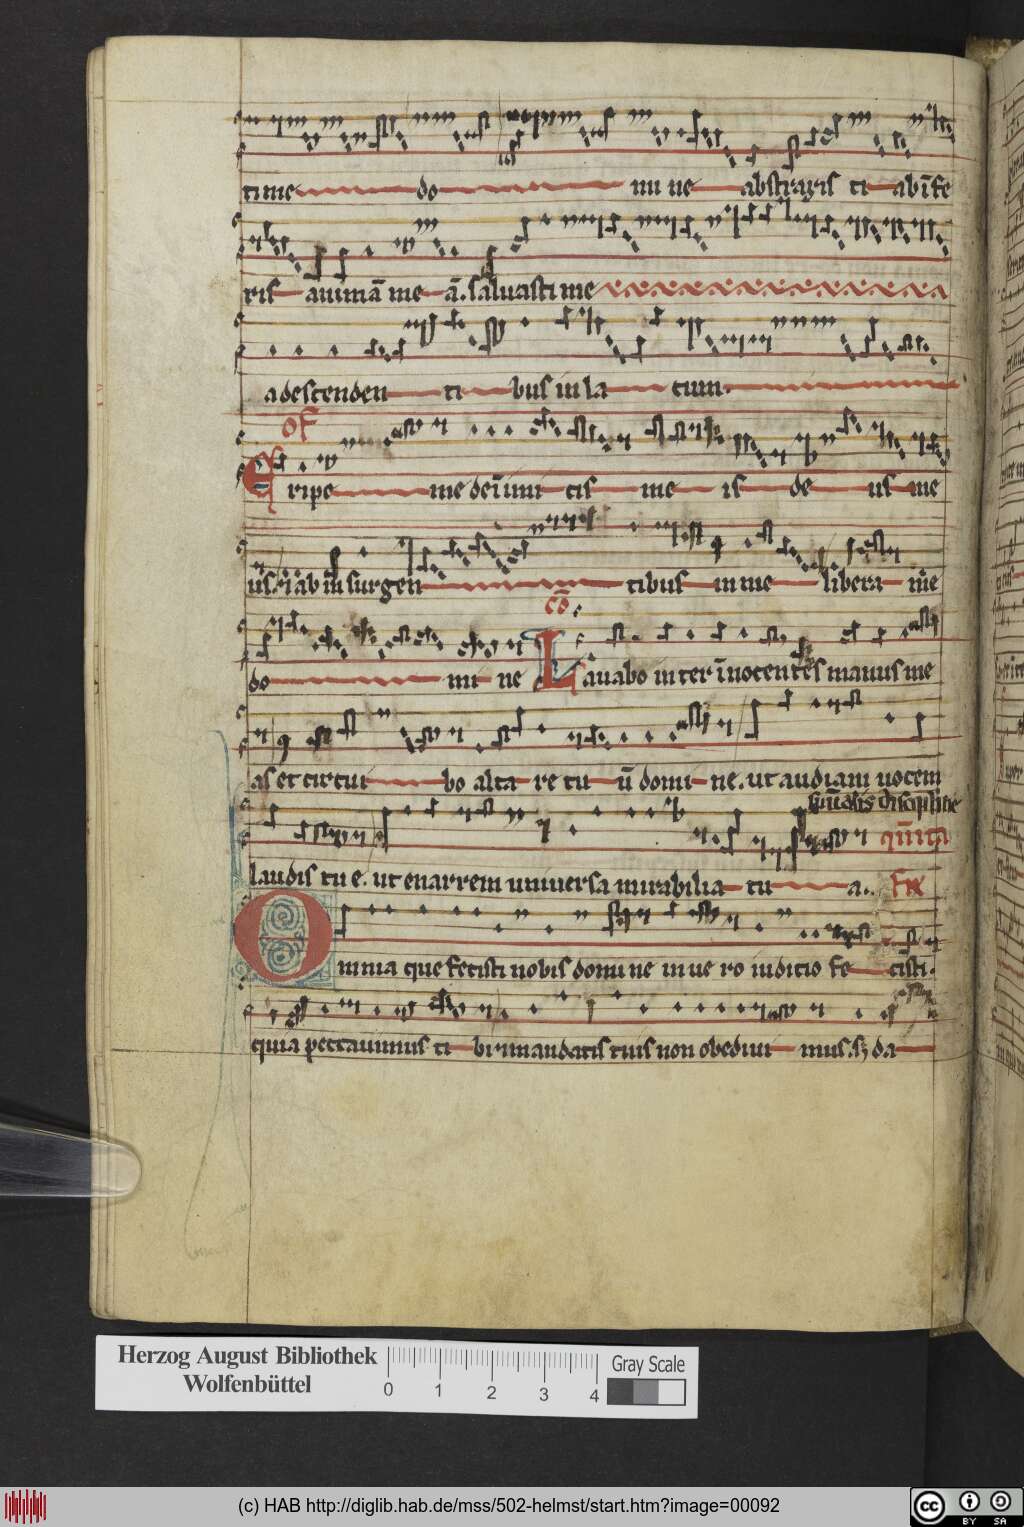 ti me do mi ne abstraxis ti ab īfe
ris animā me ā. saluasti me
a descenden ti bus in la cum.
of
Eripe me de inimi cis me is de us me
us. ⁊ ab insurgen tibus in me libera me
cō.
do mi ne Lauabo inter īnocentes manus me
as et circui bo alta re tu ū domi ne. ut audiam uocem
sp̄ualis discipline
laudis tu e. ut enarrem uniuersa mirabilia tu a..
Omnia que fecisti nobis domi ne in ue ro iudicio fe cisti.
quia peccauimus ti bi ⁊ mandatis tuis non obediui mus. sꝫ da
Herzog August Bibliothek
Wolfenbüttel
0 1 2 3 4
Gray Scale
(c) HAB http://diglib.hab.de/mss/502-helmst/start.htm?image=00092
cc BY SA